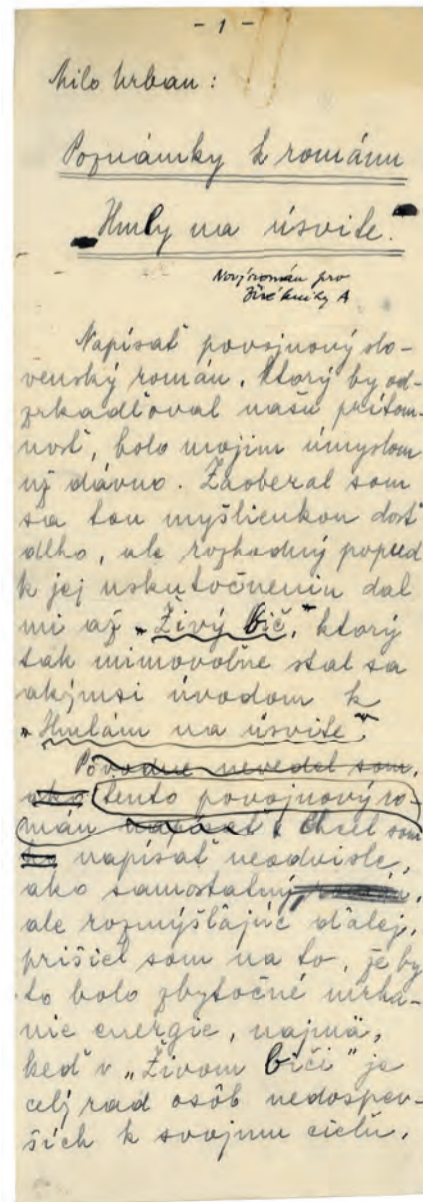 - 1 -
Milo Urban:
Poznámky k románu
„Hmly na úsvite."
Nový román pro
Živé knihy A
Napísať povojnový slo-
venský román, ktorý by od-
zrkadľoval našu prítom-
nosť, bolo mojim úmyslom
už dávno. Zaoberal som
sa tou myšlienkou dosť
dlho, ale rozhodný popud
k jej uskutočneniu dal
mi až „Živý bič," ktorý
tak mimovoľne stal sa
akýmsi úvodom k
„Hmlám na úsvite".
Pôvodne nevedel som,
ako tento povojnový ro-
mán napísať. Chcel som
ho napísať neodvisle,
ako samostatný román,
ale rozmýšľajúc ďalej,
prišiel som na to, že by
to bolo zbytočné mrha-
nie energie, najmä,
keď v „Živom biči" je
celý rad osôb nedospev-
ších k svojmu cieľu,